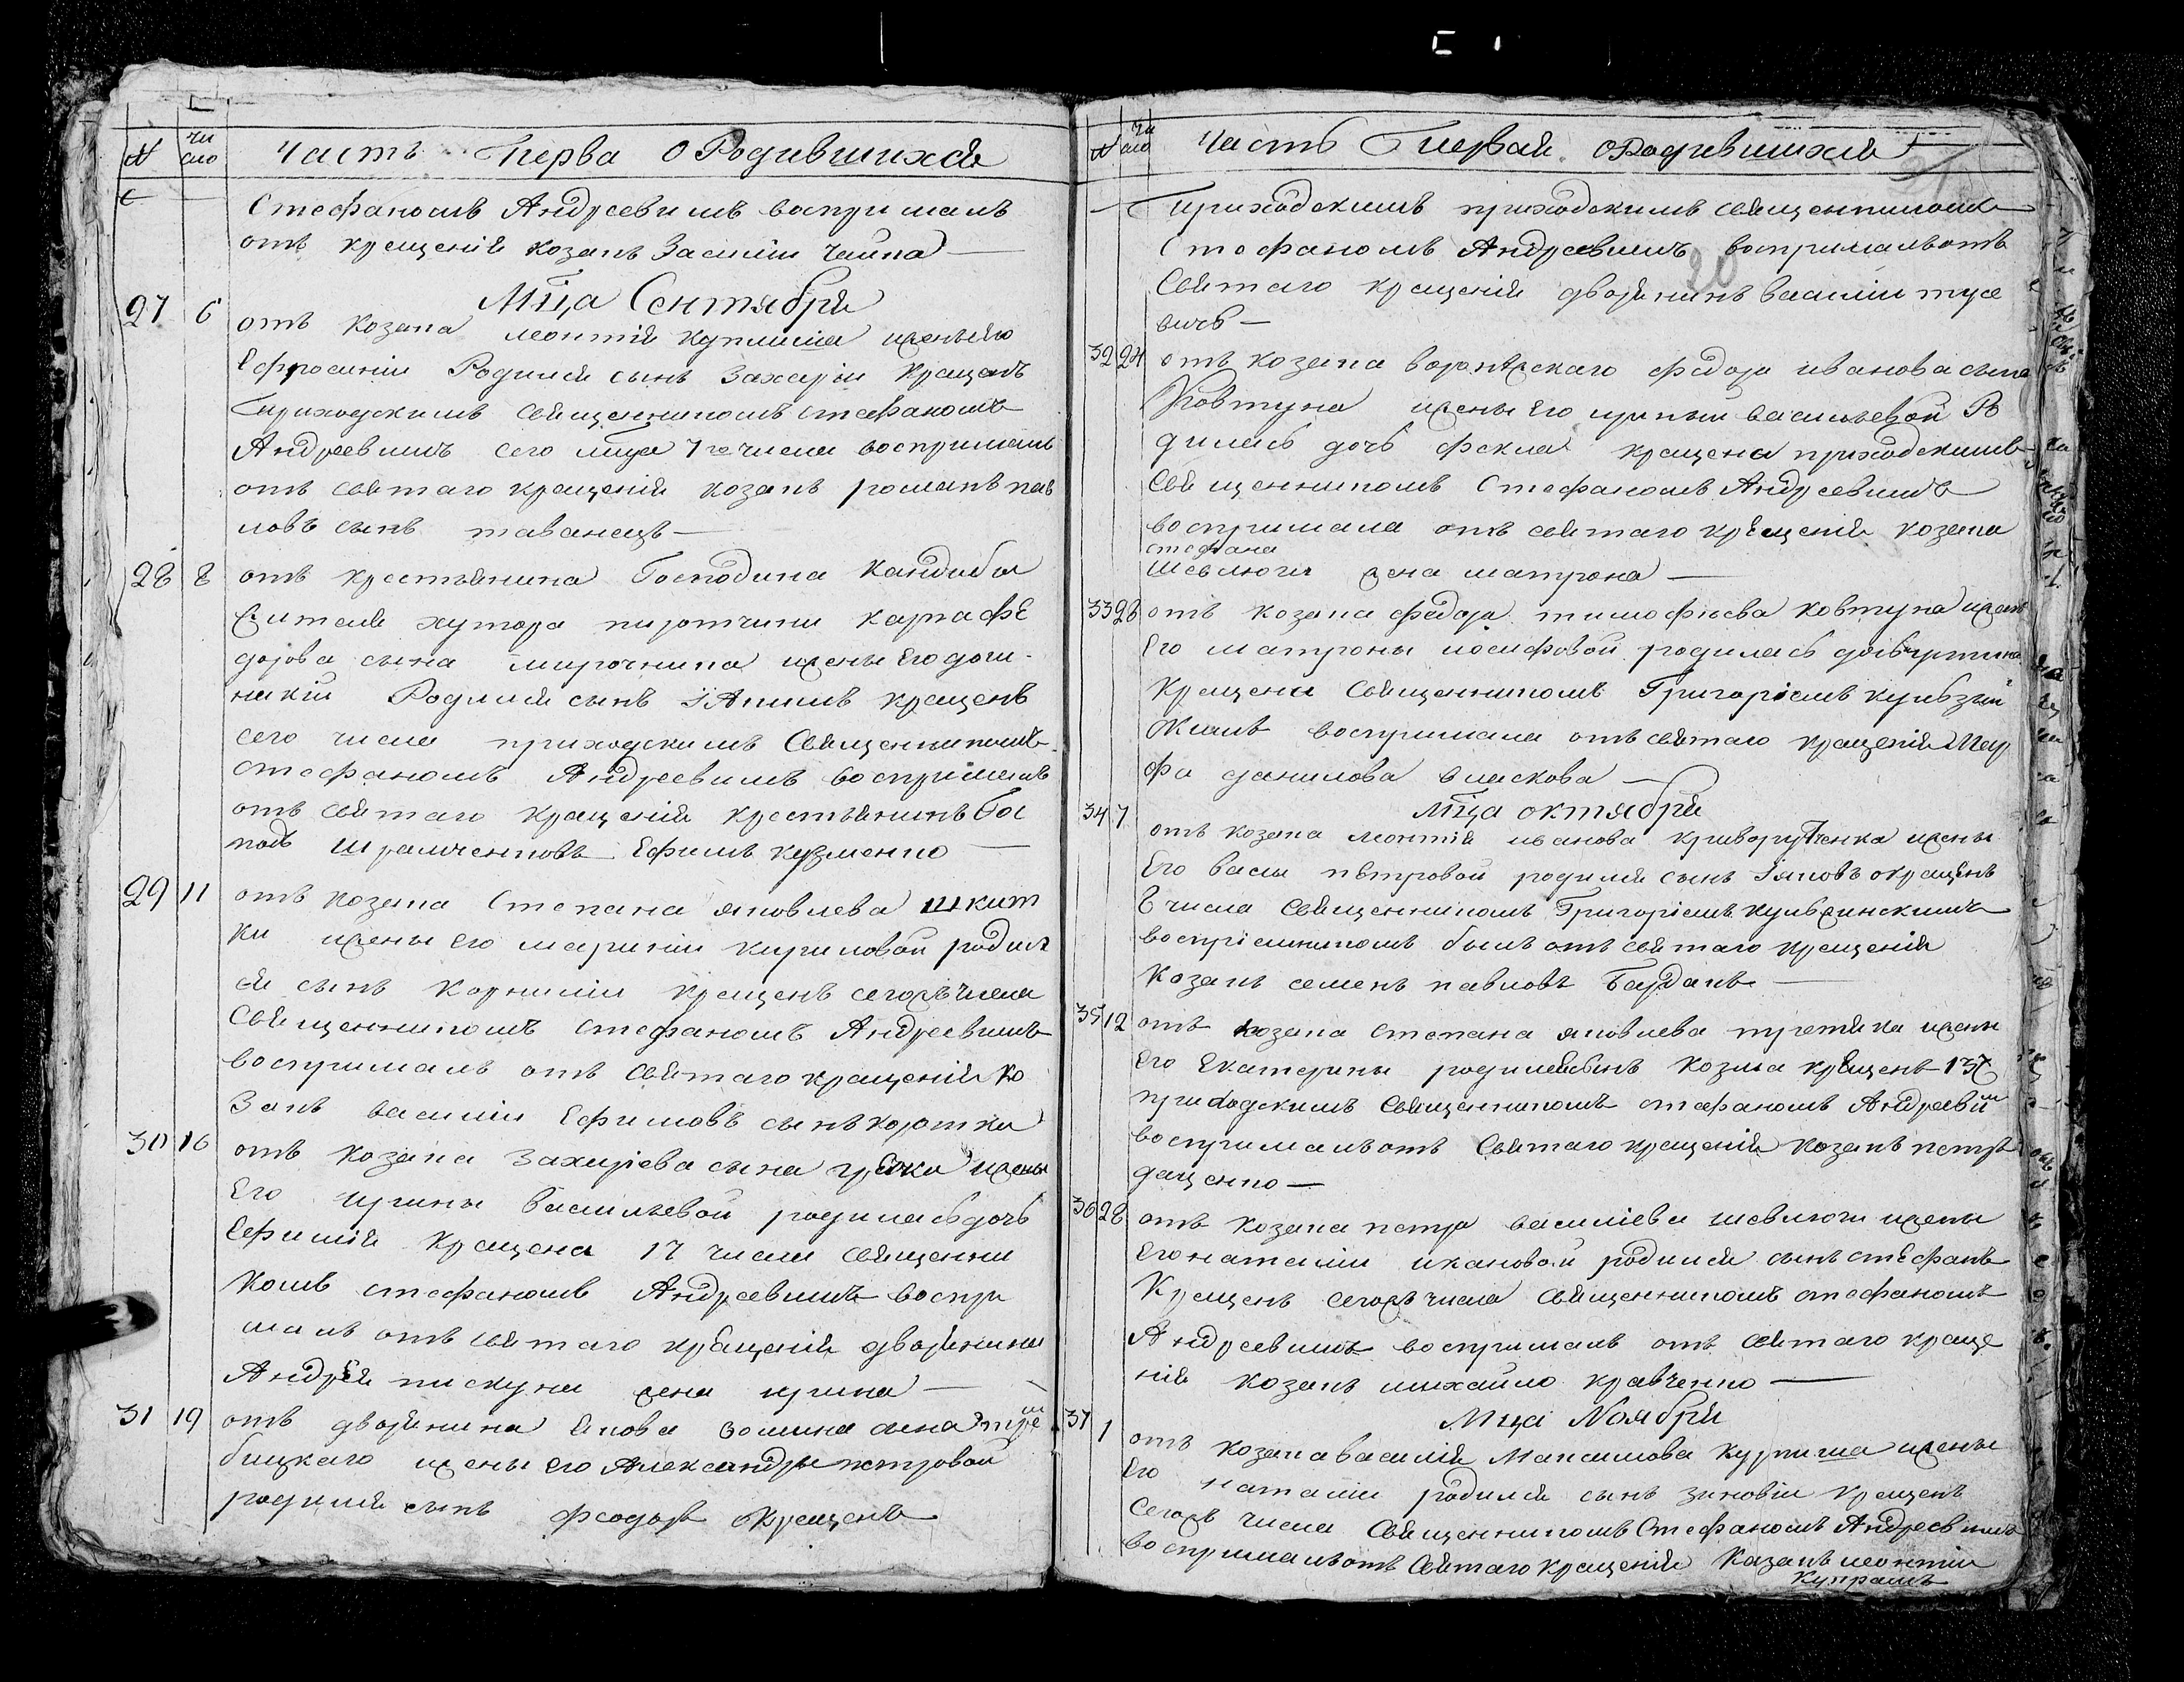 № чи сло Часть Перва о Родившихся
Стефаномъ Андреевимъ воспри малъ
отъ крещенія козакъ Василіи Чайка
Мца Сентября
27 6 отъ козака леонтія купмиша жены его
Ефросиніи Родился сынъ Захарій крещенъ
Приходскимъ священникомъ стефаномъ
Андреевимъ сего мца 7го числа воспрималъ
отъ святаго крещенія козакъ романъ пав
ловъ сынъ таванецъ
28 8 отъ крестьянина Господина Кандибы
жителя хутора пиротчини карпа фе
дорова сына мирочника жены его дома
никіи Родился сынъ Іакимъ крещенъ
сего числа приходскимъ Священникомъ
стефаномъ Андреевимъ воспрімалъ
отъ святаго крещенія крестьянинъ Гос
подъ Шрамченковъ Ефимъ кузменко
29 11 отъ козака Степана яковлева шкит
ки жены его мариніи кириловой родил
ся сынъ корнилій крещенъ сегожъ числа
Священникомъ стефаномъ Андреевимъ
воспрималъ отъ святаго крещенія ко
закъ василіи Ефимовъ сынъ коротки
30 16 отъ козака захаріева сына гречки жены
Его ирины васильевой родилась дочь
Ефимія крещена 17 числа священни
комъ стефаномъ Андреевимъ воспри
малъ отъ святаго крещенія дворянина
Андрея пискуна жена ирина
31 19 отъ дворянина якова зомина сына тре
бицкаго жены его Александры петровой
родился сынъ феодоръ окрещенъ
№ чи сло Часть Первая о Родившихся
Приходскимъ приходскимъ священникомъ
Стефаномъ Андреевимъ воспрималъ отъ
Святаго крещенія дворянинъ василіи тусе
вичъ
32 24 отъ козака воронѣжскаго федора иванова сына
Ковтуна жены Его ирины васильевой Ро
дилась дочь фекла крещена приходскимъ
Священникомъ Стефаномъ Андреевимъ
воспримала отъ святаго крещенія козака
стефана
шевлюги жена матрона
33 28 отъ козака федора тимофѣева ковтуна жены
Его матроны иосифовой родилась дочь
крещена Священникомъ Григоріемъ кульжин
скимъ воспримала отъ святаго крещенія Мар
фа данилова власкова
Мца октября
34 7 отъ козака леонтія иванова криворученка жены
Его васы петровой родился сынъ Іяковъ окрещенъ
8 числа Священникомъ Григоріемъ кульжинскимъ
воспріемникомъ былъ отъ святаго крещенія
козакъ семенъ павловъ Бардакъ
35 12 отъ козака степана яковлева третяка жены
Его Екатерины родился сынъ козма крещенъ 13
приходскимъ Священникомъ стефаномъ Андреевим
воспрималъ отъ Святаго крещенія козакъ петръ
даценко
36 28 отъ козака петра василіева шевлюги жены
Его наталіи ивановой родился сынъ стефанъ
Крещенъ сегожъ числа Священникомъ стефаномъ
Андреевимъ воспрималъ отъ святаго креще
нія козакъ михайло кравченко
Мца Ноября
37 1 отъ козака василія Максимова Куприша жены
Его наталіи родился сынъ зиновіи крещенъ
Сегожъ числа Священникомъ Стефаномъ Андреевимъ
воспрималъ отъ Святаго крещенія козакъ леонтіи
Купрашъ